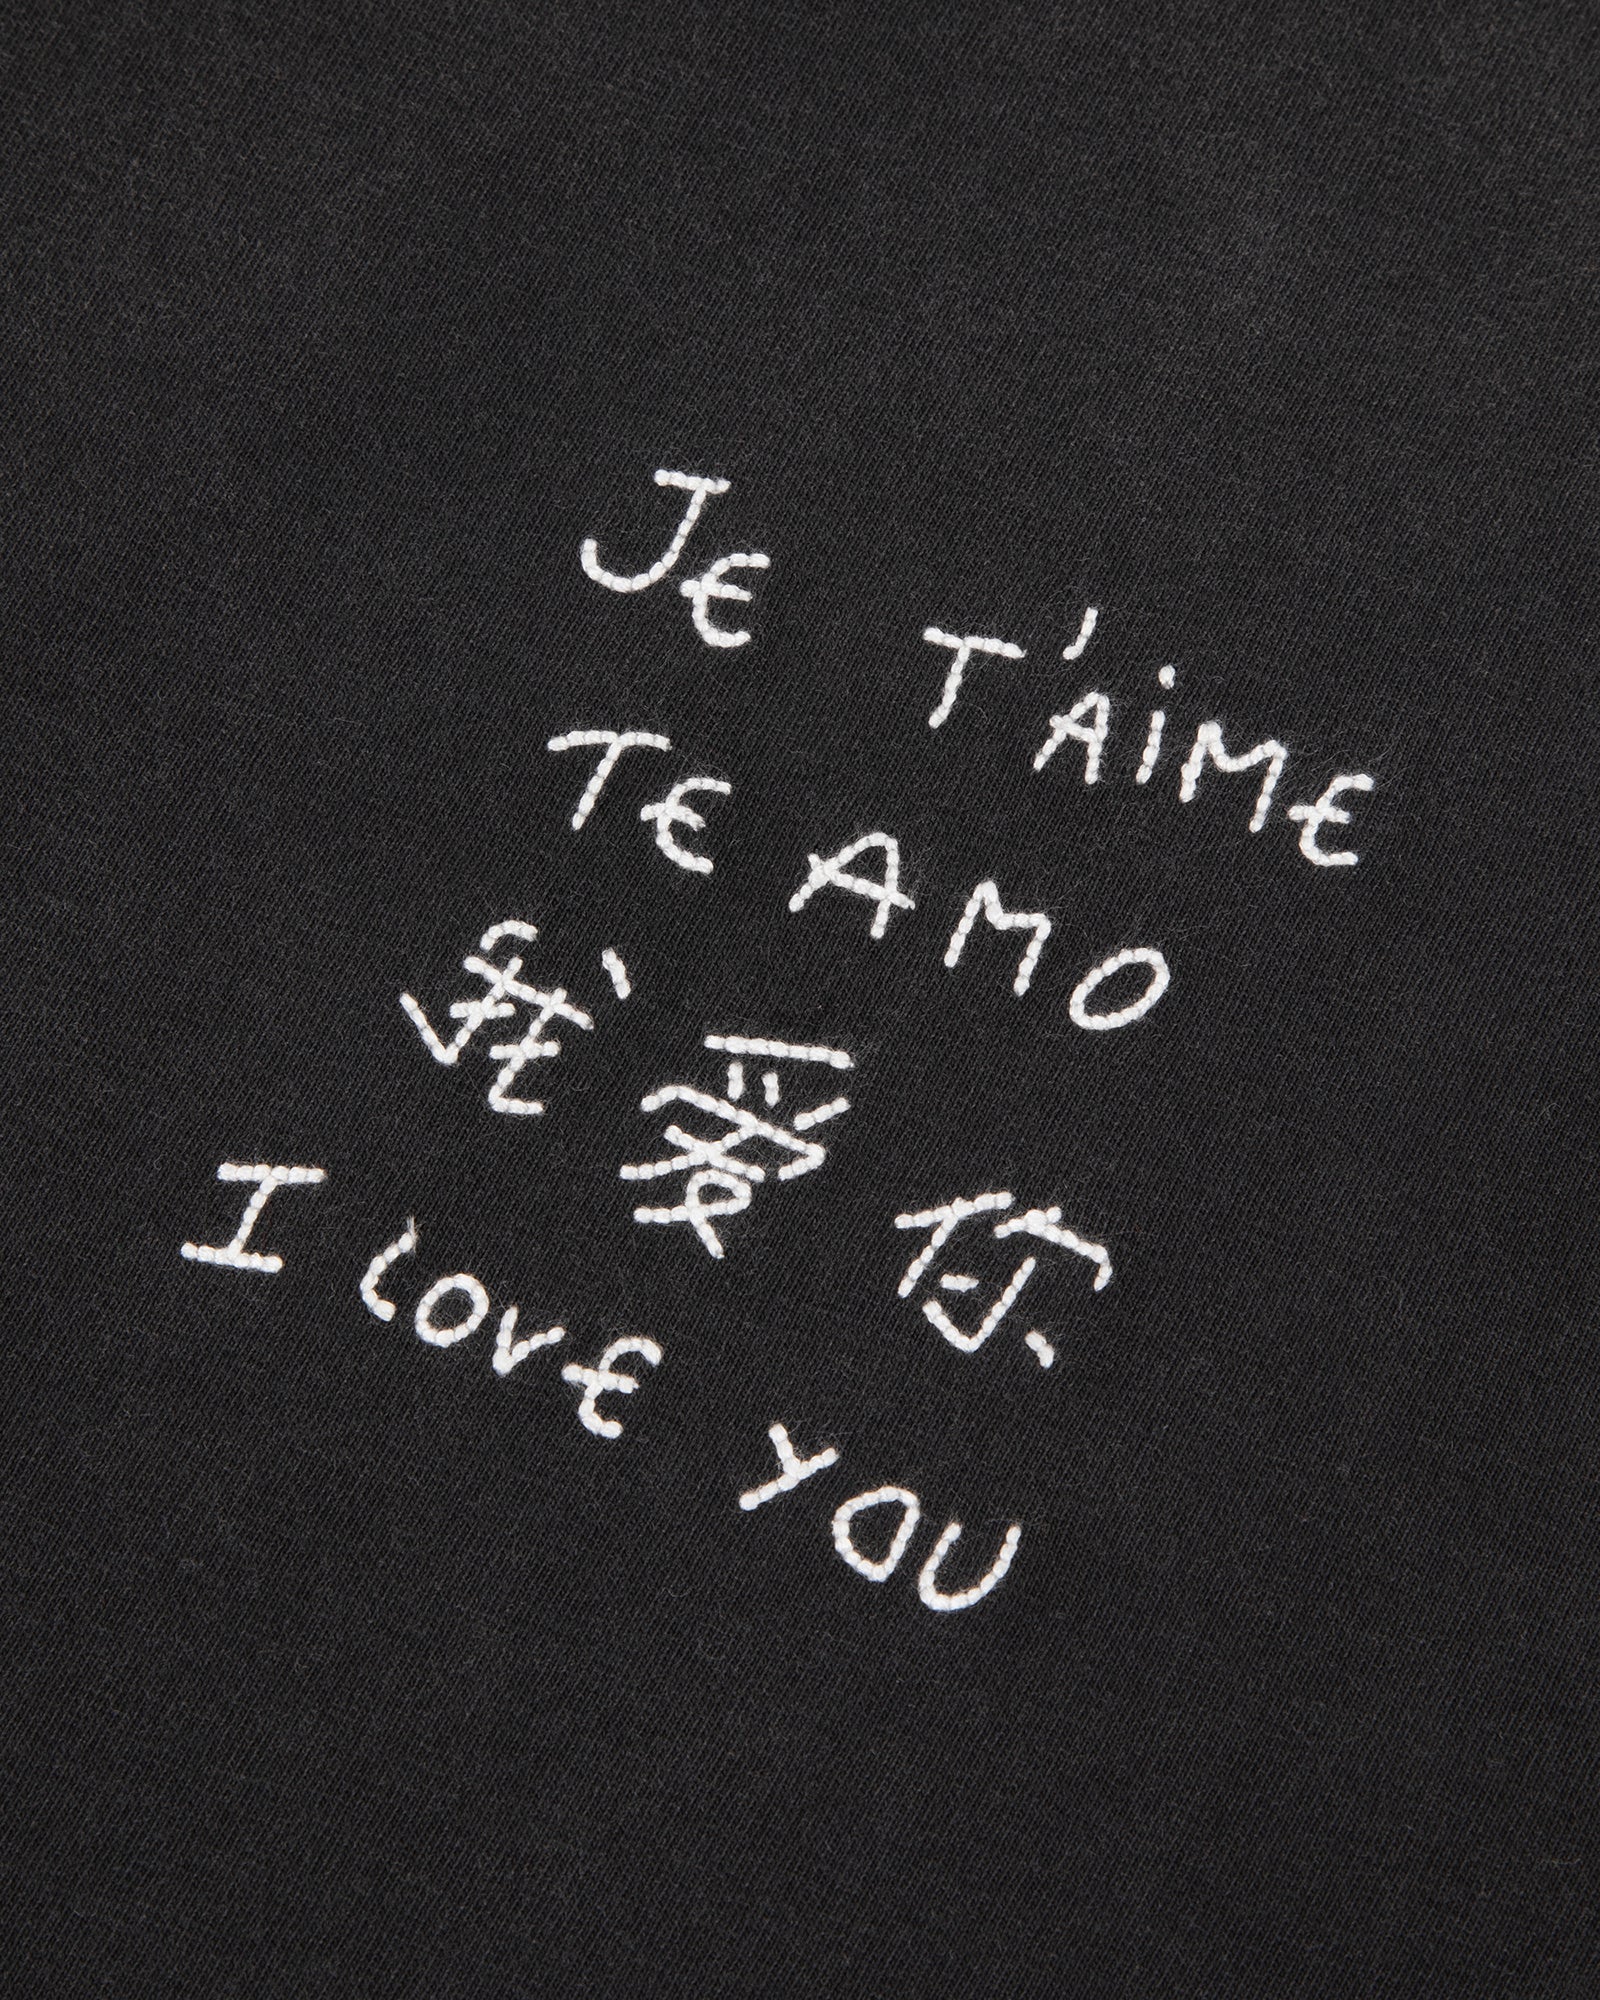 JE T'AiME
TE AMO
我 爱 你
I LOVE YOU